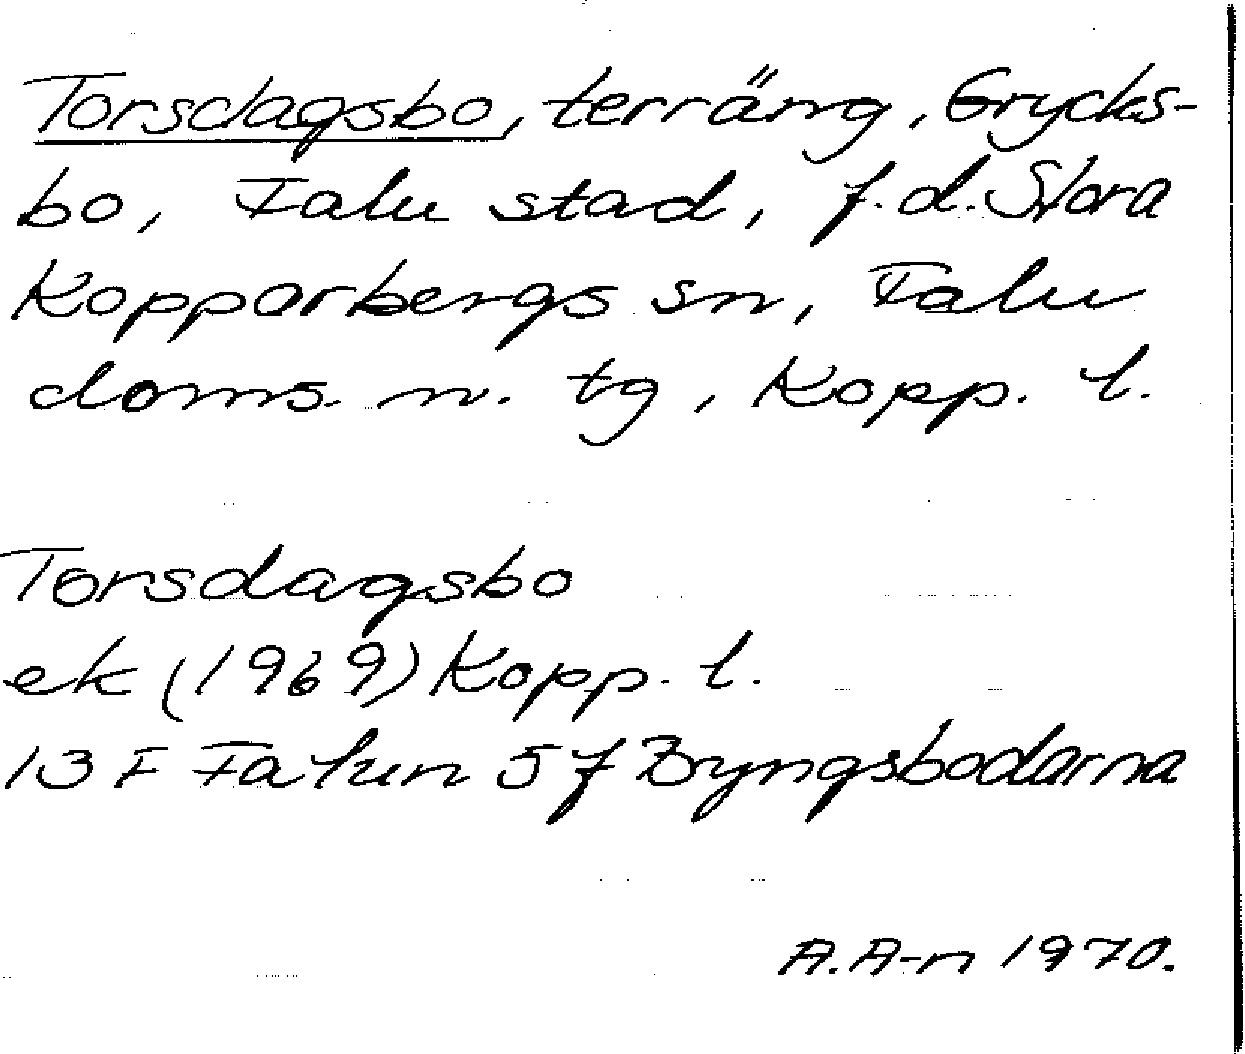 Torsdagsbo, terräng, Grycks-
bo, Falu stad, f.d. Stora
Kopparbergs sn, Falu
doms. n. tg, Kopp. l.
Torsdagsbo
ek (1969) Kopp. l.
13 F Falun 5 f Byngsbodarna
A. A-n 1970.